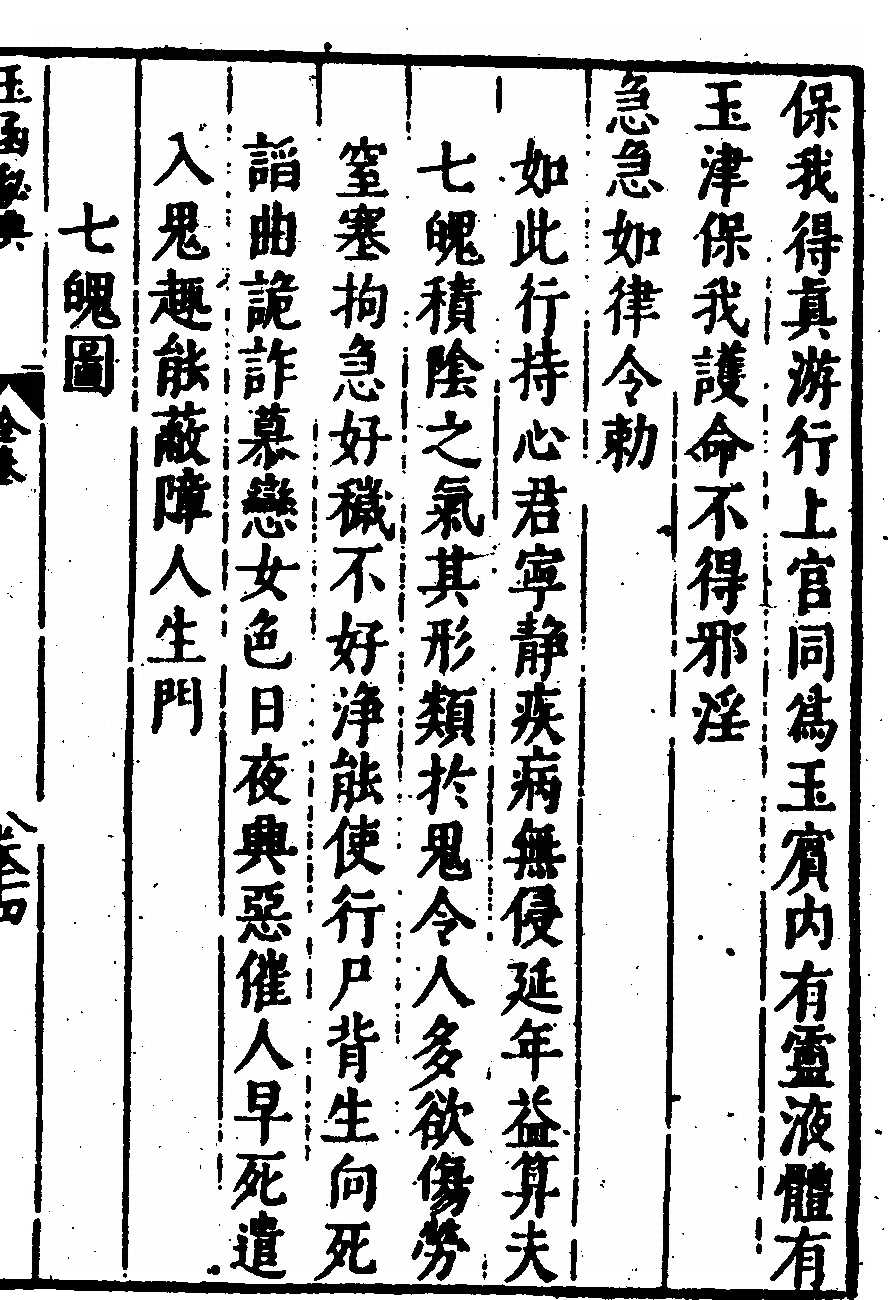 保我得眞游行上官同爲玉賓内有靈液體有
玉津保我護命不得邪淫
急急如律令勅
如此行持心君寧静疾病無侵延年益算夫
七魄積陰之氣其形類於鬼令人多欲傷勞
窒塞拘急好穢不好淨能使行尸背生向死
謟曲詭詐慕戀女色日夜興惡催人早死遣
入鬼趣能蔽障人生門
七魄圖
玉函秘典
卷七